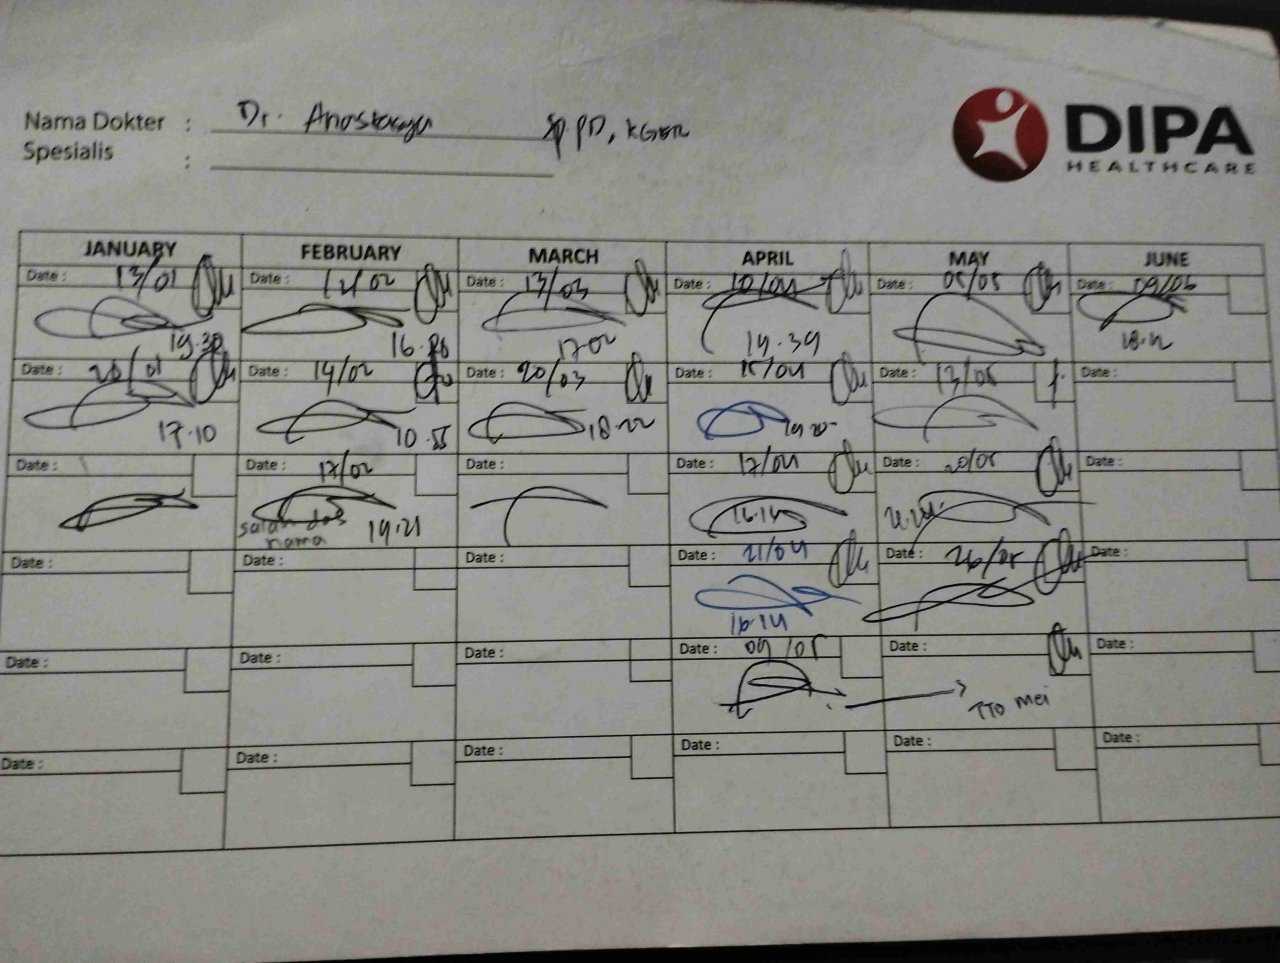 Nama Dokter : Dr. Anastasya Sp.PD, KGER
Spesialis :
DIPA
HEALTHCARE
JANUARY FEBRUARY MARCH APRIL MAY JUNE
Date : 13/01 Date : 12/02 Date : 13/03 Date : 10/04 Date : 05/05 Date : 09/06
19.30 16. 17.02 19.39 18.12
Date : 20/01 Date : 14/02 Date : 20/03 Date : 15/04 Date : 13/05 Date :
17.10 10.55 18.22
Date : Date : 17/02 Date : Date : 17/04 Date : 20/05 Date :
salah dos
nama 19.21 16.14
Date : Date : Date : Date : 21/04 Date : 26/05 Date :
16.14
Date : Date : Date : Date : 09/05 Date : Date :
TTD Mei
Date : Date : Date : Date : Date : Date :